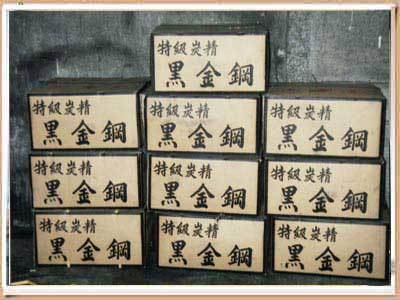 特級炭精
黒金鋼
特級炭精
黒金鋼
特級炭精
黒金鋼
特級炭精
黒金鋼
特級炭精
黒金鋼
特級炭精
黒金鋼
特級炭精
黒金鋼
特級炭精
黒金鋼
特級炭精
黒金鋼
特級炭精
黒金鋼